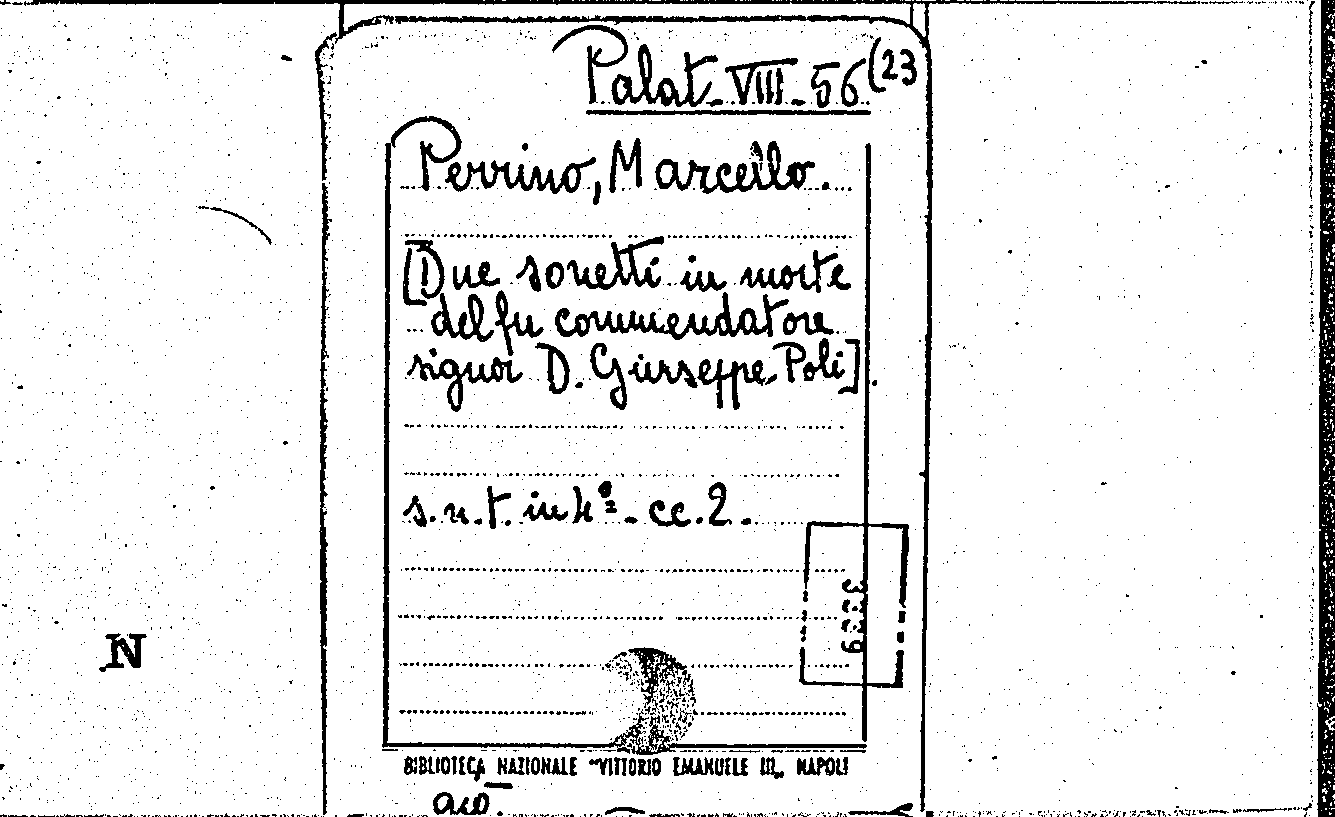 Palat. VIII. 56 (23
Perrino, Marcello.
[Due sonetti in morte
del fu commendatore
signor D. Giuseppe Poli].
s. n. t. in 4º. cc. 2.
N
BIBLIOTECA NAZIONALE "VITTORIO EMANUELE III„ NAPOLI